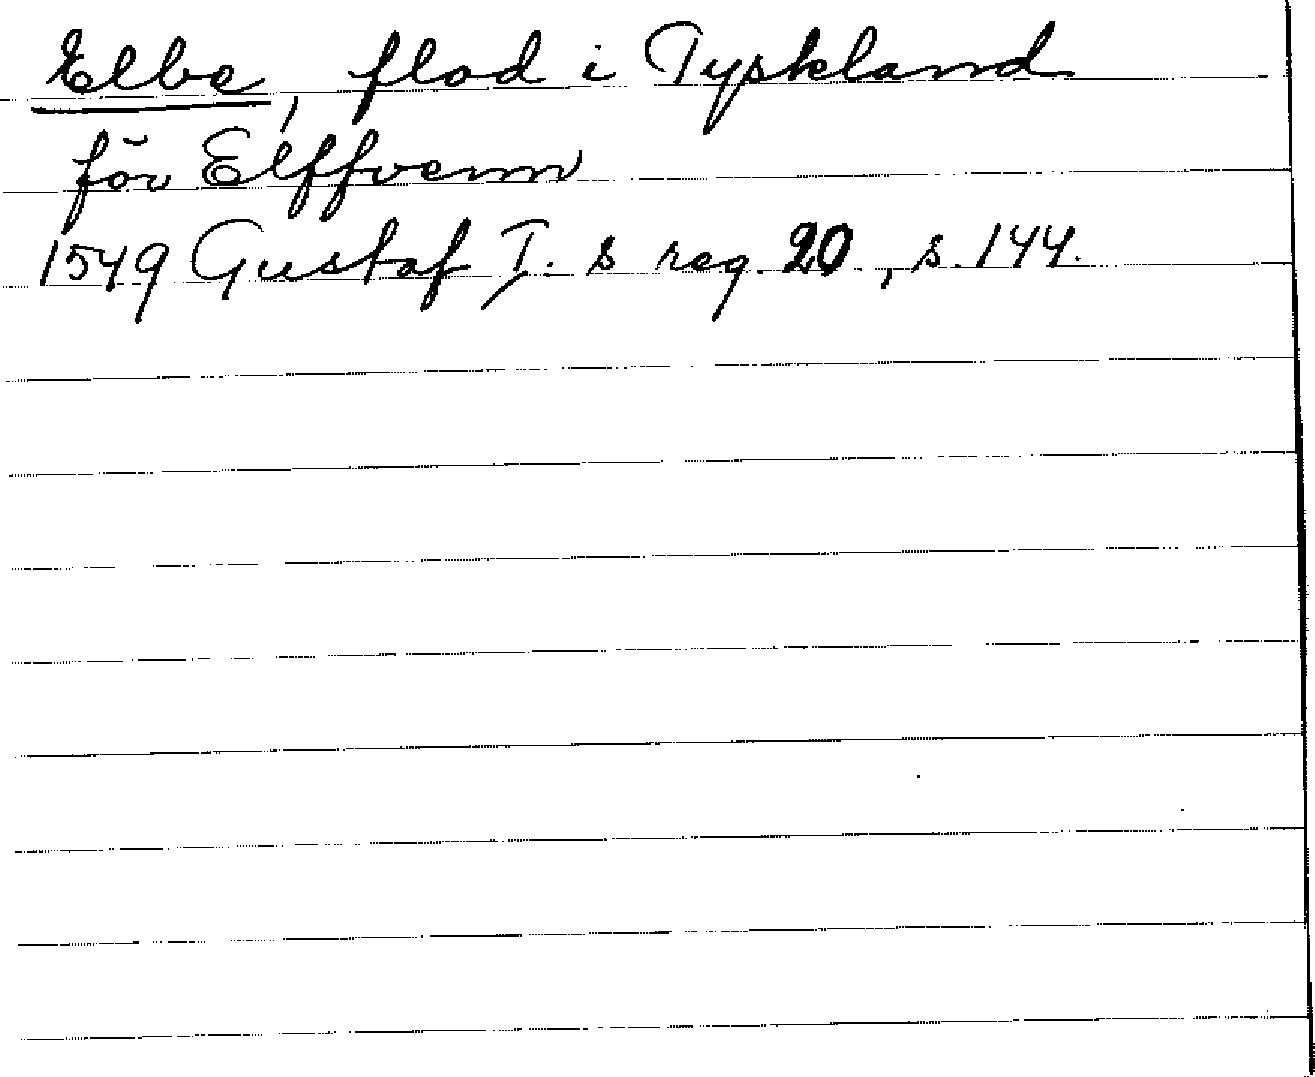 Elbe, flod i Tyskland
för Elffvenn
1549 Gustaf I. s reg. 20, s. 144.